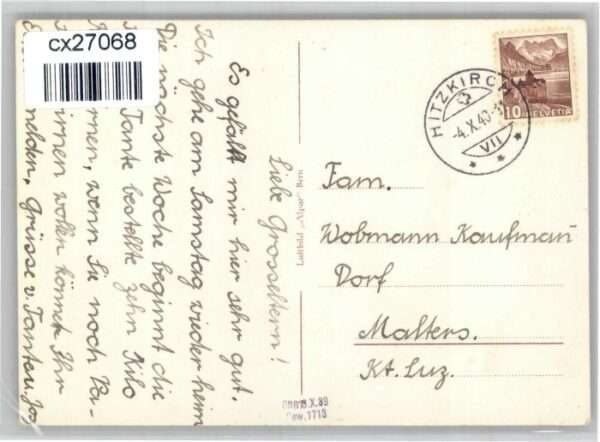 cx27068
Liebe Grosseltern!
Es gefällt mir hier sehr gut.
Ich gehe am Samstag wieder heim
Die nächste Woche beginnt die
Tante bestellte zehn Kilo
wenn Sie noch Ba-
wollen könnet Ihr
melden, Grüsse v. Tante u. Jos
Luftbild „Alpar" Bern
HITZKIRCH
-4.X.40-
VII
10 HELVETIA
Fam.
Wobmann Kaufman
Dorf
Malters.
Kt. Luz.
X.39
1713